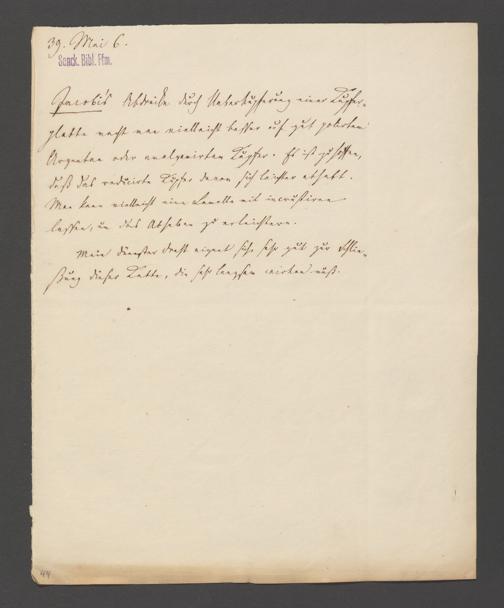 39. Mai 6.
Senck. Bibl. Ffm.
Jacobi's Abdrücke durch Unterkupferung einer Kupfer-
platte macht man vielleicht besser auf gut polirtem
Argentan oder amalgamirtem Kupfer. Es ist zu hoffen,
daß das reducirte Kupfer davon sich leichter abhebt.
Man kann vielleicht eine Lamelle mit incrustiren
lassen, um das Abheben zu erleichtern.
Mein dünnster Draht eignet sich sehr gut zur Schlie-
ßung dieser Kette, die sehr langsam wirken muß.
44